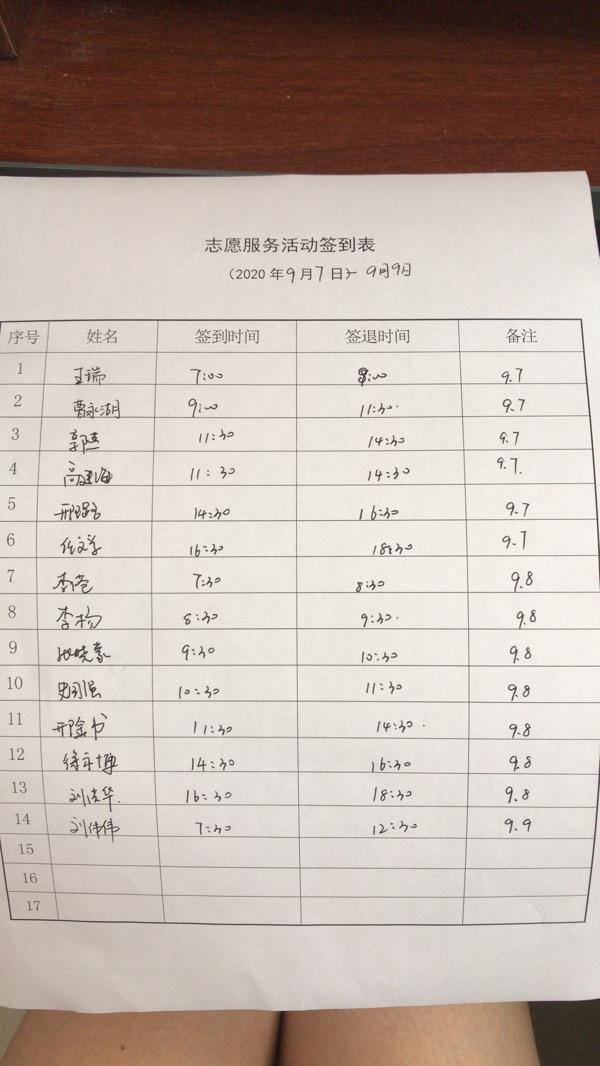 志愿服务活动签到表
(2020 年 9 月 7 日)- 9月9日
序号 姓名 签到时间 签退时间 备注
1 王瑞 7:00 9:00 9.7
2 曹永湖 9:00 11:30 9.7
3 11:30 14:30 9.7
4 11:30 14:30 9.7.
5 14:30 16:30 9.7
6 任文学 16:30 18:30 9.7
7 7:30 8:30 9.8
8 李杨 8:30 9:30 9.8
9 9:30 10:30 9.8
10 10:30 11:30 9.8
11 11:30 14:30 9.8
12 14:30 16:30 9.8
13 16:30 18:30 9.8
14 刘伟伟 7:30 12:30 9.9
15
16
17